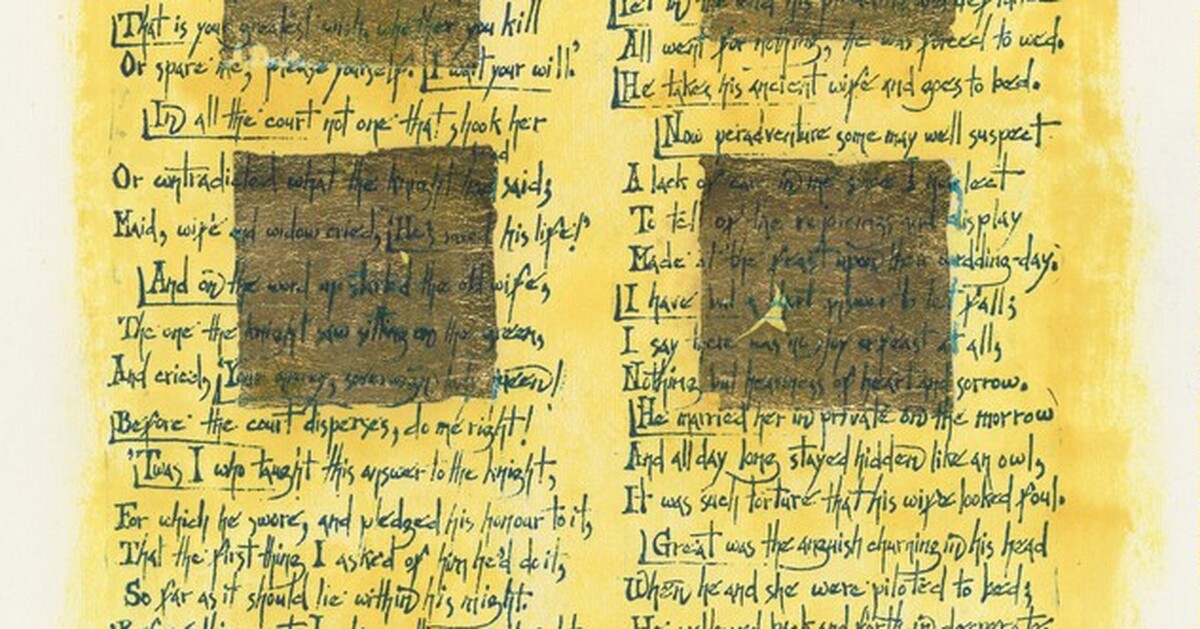 That is your greatest wish, whether you kill
Or spare me, please yourself. I wait your will.'
In all the court not one that shook her head
Or contradicted what the knight had said;
Maid, wife and widow cried, 'He's saved his life!'
And on the word up started the old wife,
The one the knight saw sitting on the green,
And cried, 'Your mercy, sovereign lady queen!
Before the court disperses, do me right!
'Twas I who taught this answer to the knight,
For which he swore, and pledged his honour to it,
That the first thing I asked of him he'd do it,
So far as it should lie within his might.
All went for nothing, he was forced to wed.
He takes his ancient wife and goes to bed.
Now peradventure some may well suspect
A lack of care in me since I neglect
To tell of the rejoicings and display
Made at the feast upon their wedding-day.
I have but a short answer to let fall;
I say there was no joy or feast at all,
Nothing but heaviness of heart and sorrow.
He married her in private on the morrow
And all day long stayed hidden like an owl,
It was such torture that his wife looked foul.
Great was the anguish churning in his head
When he and she were piloted to bed;
He wallowed back and forth in desperate